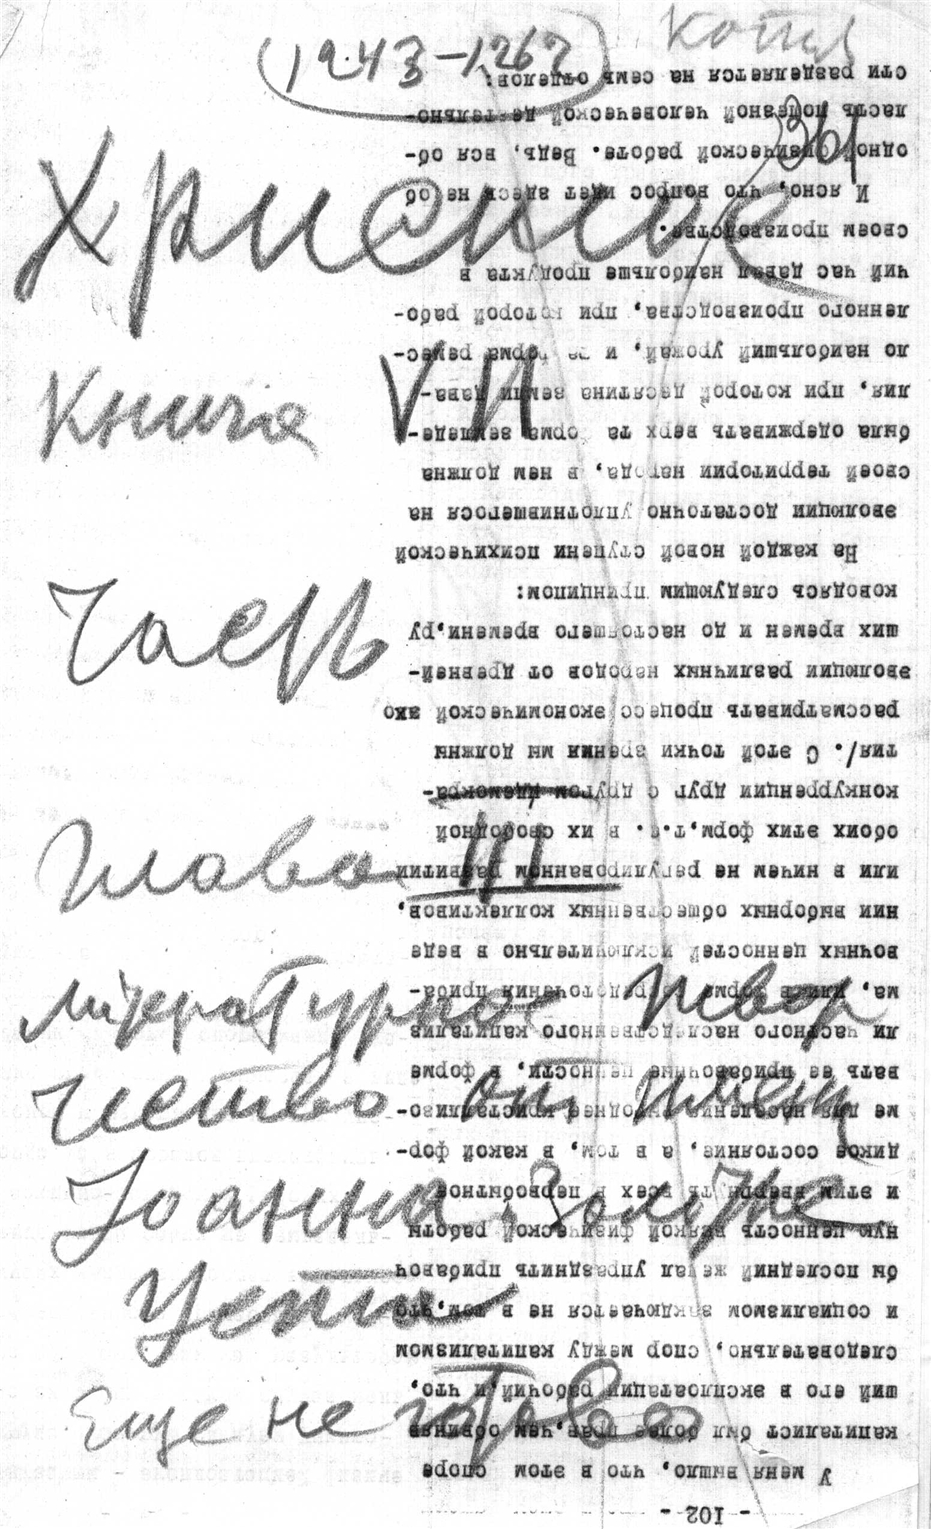 (1243-1267)
Копия
361
Книга VII
Часть
Глава III
Литературное твор
чество от имени
Іоанна Золото
уста
Еще не готово
- 102 -
У меня вышло, что в этом споре
капиталист был более прав, чем обвиняв
ший его в эксплоатации рабочий, и что,
следовательно, спор между капитализмом
и социализмом заключается не в том, что
бы последний желал упразднить прибавоч
ную ценность всякой физической работы
и этим ввергнуть всех в первобытное
дикое состояние, а в том, в какой фор-
ме для населения выгоднее кристаллизо-
вать ее прибавочные ценности, в форме
ли частного наследственного капитализ
ма, или в форме сосредоточения приба-
вочных ценностей исключительно в веде
нии выборных общественных коллективов,
или в ничем не регулированном развитии
обоих этих форм, т.е. в их свободной
конкурренции друг с другом
тия/. С этой точки зрения мы должны
рассматривать процесс экономической
эволюции различных народов от древней-
ших времен и до настоящего времени, ру
ководясь следующим принципом:
На каждой новой ступени психической
эволюции достаточно уплотнившегося на
своей территории народа, в нем должна
была одерживать верх та форма земледе-
лия, при которой десятина земли дава-
ла наибольший урожай, и та форма ремес-
ленного производства, при которой рабо-
чий час давал наибольше продукта в
своем производстве.
И ясно, что вопрос идет здесь не об
одной физической работе. Ведь, вся об-
ласть полезной человеческой деятельно-
сти разделяется на семь отделов: